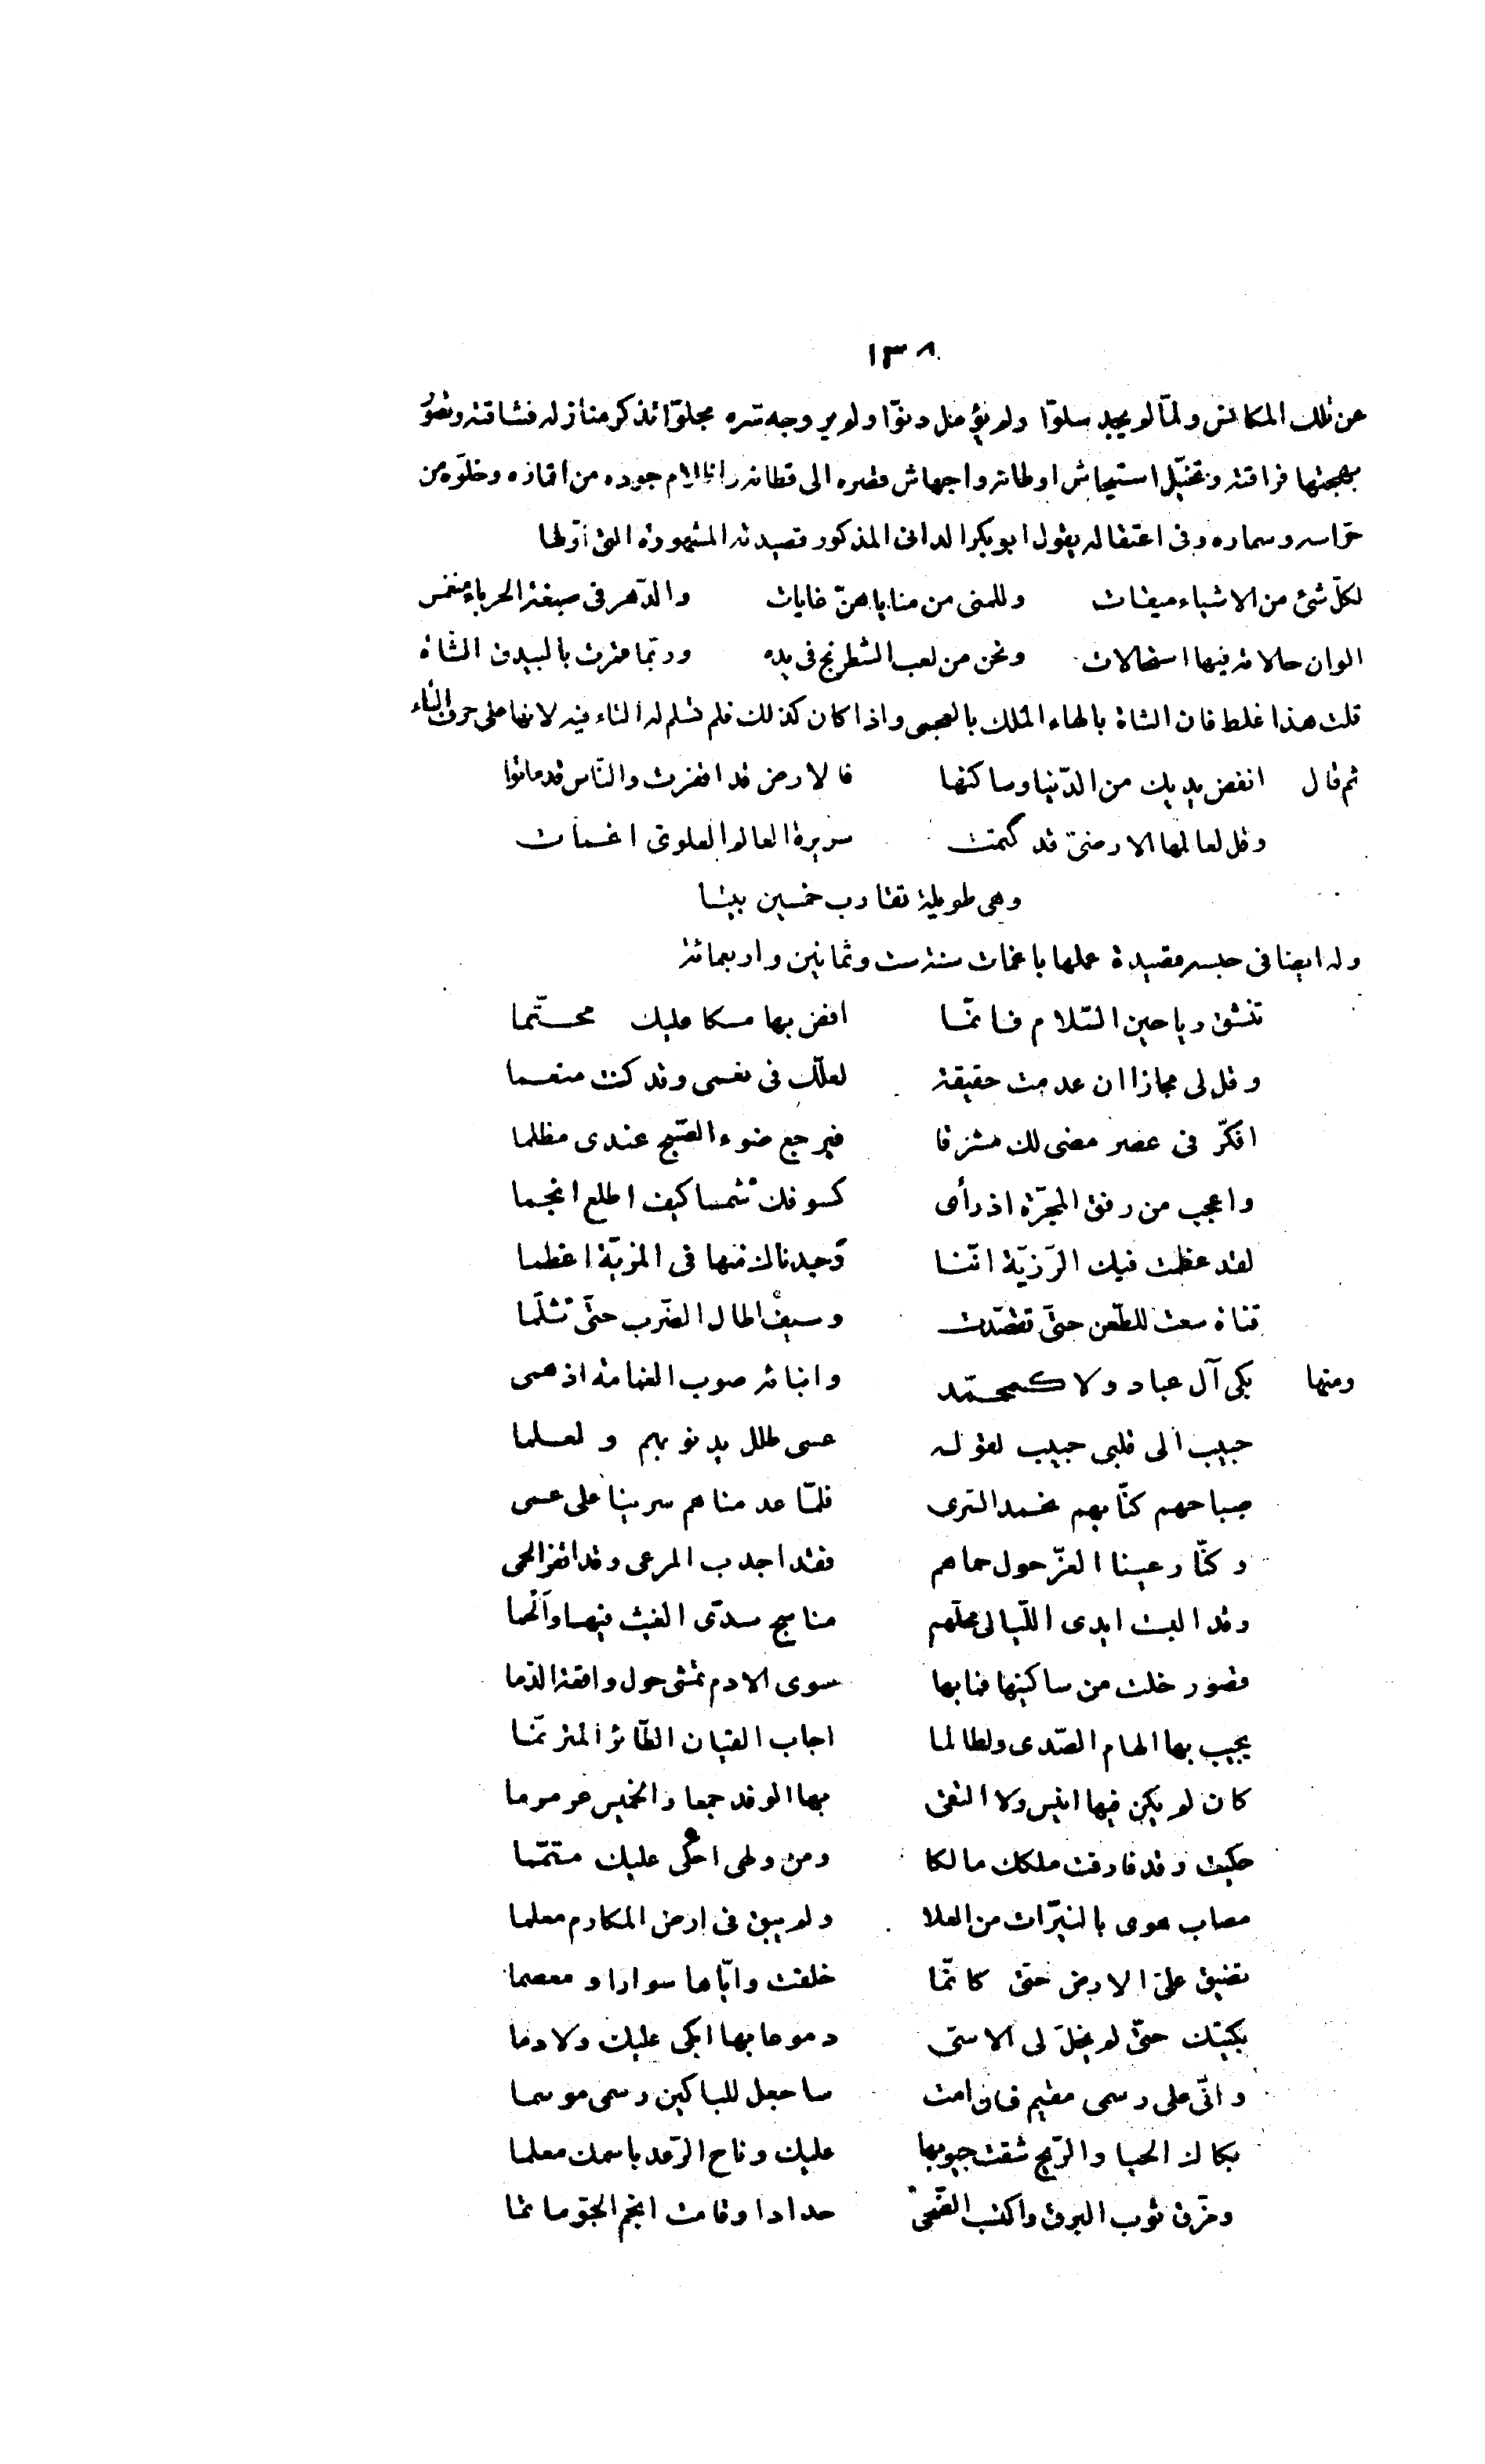 ١٣٨
عن تلك المكانس ولمّا لم يجد سلوّا ولم يؤمل دنوّا ولم ير وجه مسره مجلوّا تذكر منازله فشاقته وتصوّر
بهجتها فراقته وتخيّل استيحاش اوطانه واجهاش قصره الى قطانه واظلام جوده من اقماره وخلوّه من
حرّاسه وسماره وفى اعتقاله يقول ابو بكر الدانى المذكور قصيدته المشهورة التى اوّلها
لكلّ شئ من الاشياء ميقات وللمنى من مناياهنّ غايات والدّهر فى صبغة الحرباء منغمس
الوان حالاته فيها استحالات ونحن من لعب الشطرنج فى يده وربّما قمرت بالبيدق الشاة
قلت هذا غلط فان الشاة بالهاء الملك بالعجمى واذا كان كذلك فلم تسلم له التاء فيه لانها على حرف التاء
ثم قال انفض يديك من الدّنيا وساكنها فالارض قد اقفرت والنّاس قد ماتوا
وقل لعالمها الارضىّ قد كتمت سريرة العالم العلوى اغمات
وهى طويلة تقارب خمسين بيتا
وله ايضا فى حبسه قصيدة عملها باغمات سنة ست وثمانين واربعمائة
تنشق رياحين السّلام فانمّا افض بها مسكا عليك مختّما
وقل لى مجازا ان عدمت حقيقة لعلّك فى نعمى وقد كنت منعما
افكّر فى عصر مضى لك مشرقا فيرجع ضوء الصّبح عندى مظلما
واعجب من رفق المجرّة اذ رأى كسوفك شمسا كيف اطلع انجما
لقد عظمت فيك الرّزيّة انّنا وجدناك منها فى المزيّة اعظما
قناة سعت للطّعن حتىّ تقصّدت وسيف اطال الضّرب حتّى تثلّما
ومنها بكى آل عباد ولا كمحمّد وابنائه صوب الغمامة اذ همى
حبيب الى قلبى حبيب لقوله عسى طلل يدنو بهم ولعلما
صباحهم كنّا بهم نحمد السّرى فلمّا عدمناهم سرينا على عمى
وكنّا رعينا العزّ حول حماهم فقد اجدب المرعى وقد اقفر الحمى
وقد البست ايدى اللّيالى محلّهم مناسج سدّى الغيث فيها والحما
قصور خلت من ساكنيها فما بها سوى الادم تمشى حول واقفة الدّما
يجيب بها الهام الصّدى ولطالما اجاب القيان الطّائر المترنّما
كان لم يكن فيها انيس ولا التقى بها الوفد جمعا والخميس عرمرما
حكيت وقد فارقت ملكك مالكا ومن ولهى احكى عليك متمّما
مصاب هوى بالنيّرات من العلا ولم يبق فى ارض المكارم معلما
تضيق علىّ الارض حتىّ كانّما خلقت وايّاها سوارا ومعصما
بكيتك حتىّ لم يخلّ لى الاسى دموعا بها ابكى عليك ولا دما
وانّى على رسمى مقيم فان امت ساجعل للباكين رسمى موسما
بكاك الحيا والرّيح شقت جيوبها عليك وناح الرّعد باسمك معلما
ومزّق ثوب البرق واكتست الضّحى حدادا وقامت انجم الجوّ ماتما